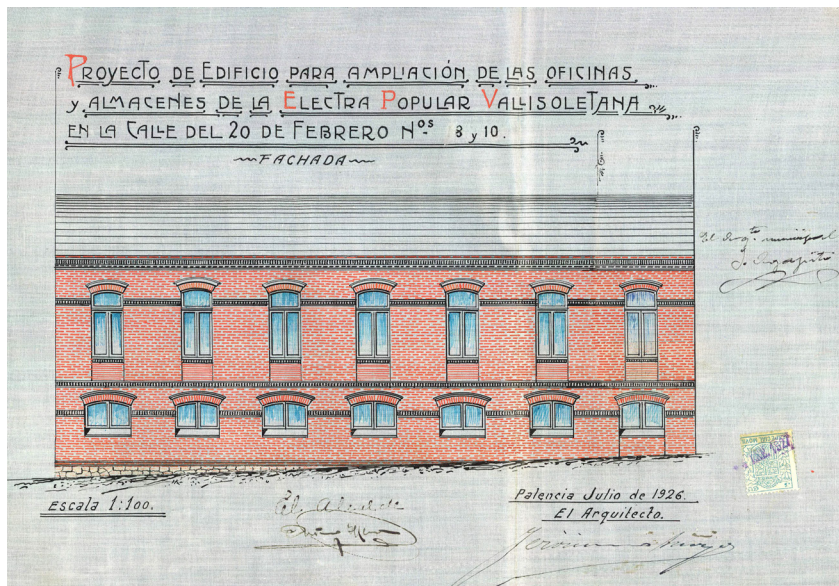 PROYECTO DE EDIFICIO PARA AMPLIACIÓN DE LAS OFICINAS
y ALMACENES DE LA ELECTRA POPULAR VALLISOLETANA
EN LA CALLE DEL 20 DE FEBRERO Nos 8 y 10.
FACHADA
El Arqto municipal
J. Agapito
Escala 1:100.
El Alcalde
Palencia Julio de 1926.
El Arquitecto.
Jerónimo Arroyo